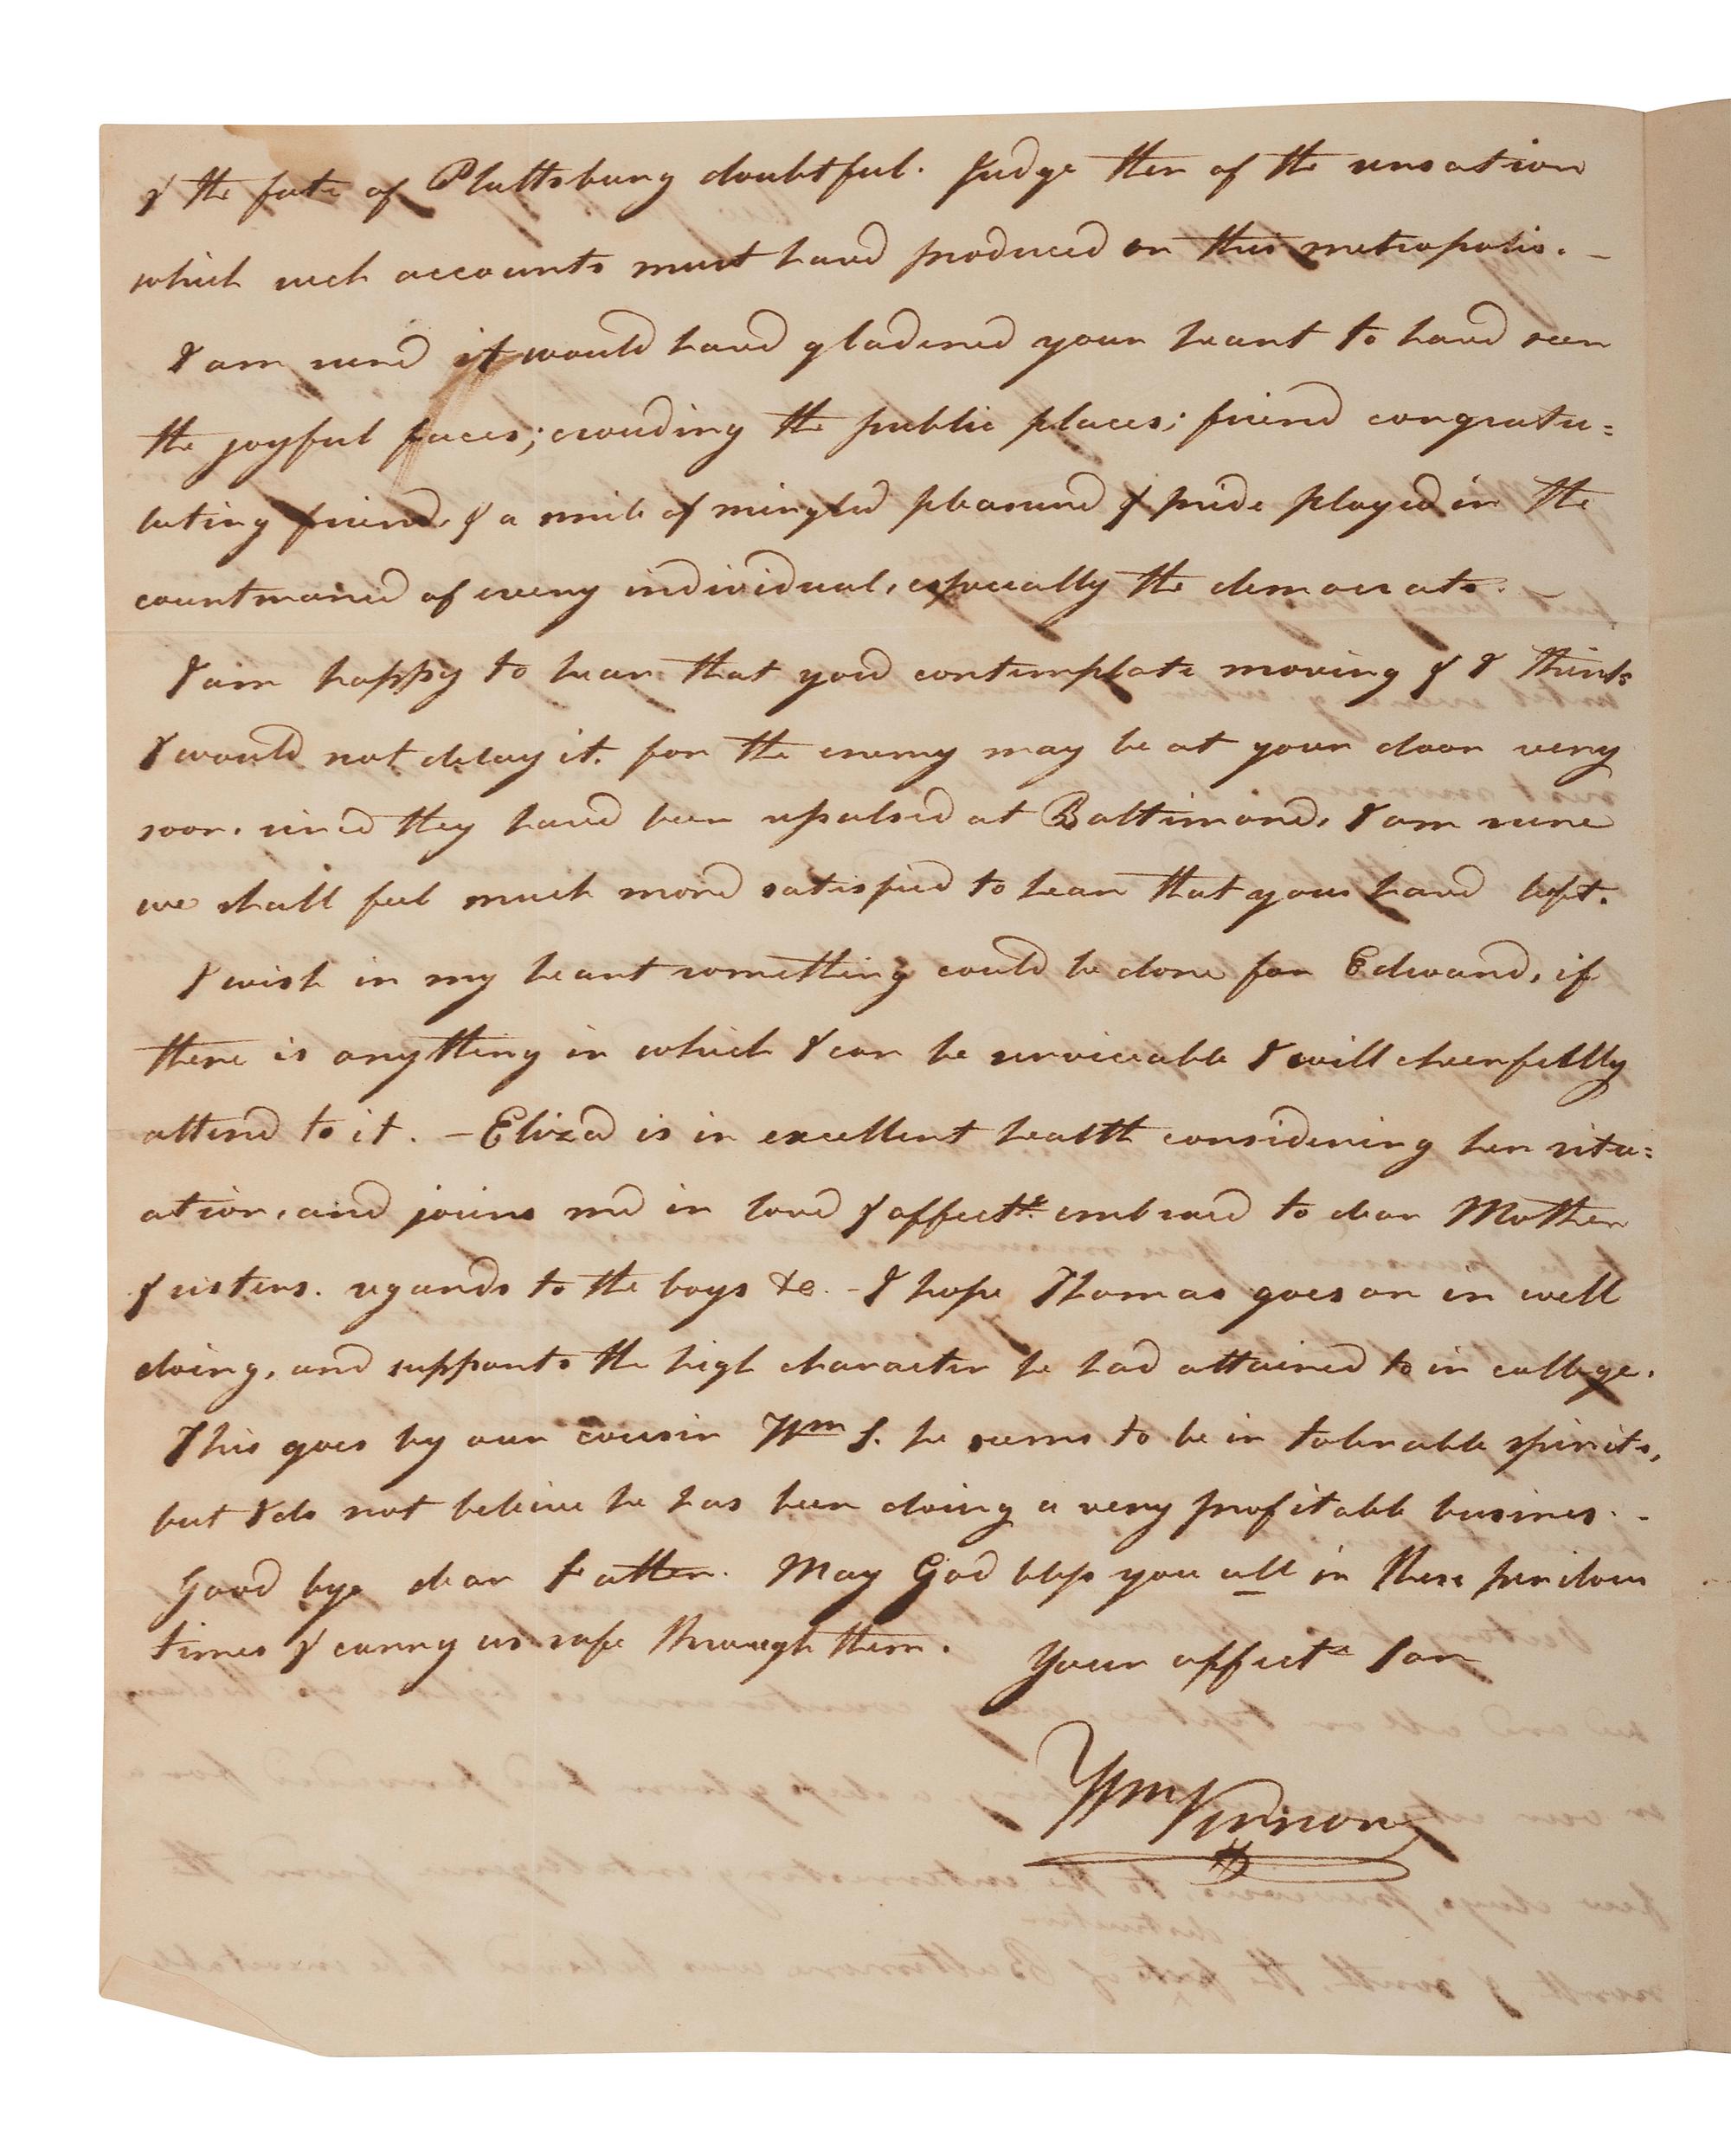 & the fate of Plattsburg doubtful. Judge then of the sensation
which such accounts must have produced on this metropolis. –
I am sure it would have gladened your heart to have seen
the joyful faces; crouding the public places; friend congratu=
lating friend, & a smile of mingled pleasure & pride played in the
countenance of every individual, especially the democrats. –
I am happy to hear that you contemplate moving & I think
I would not delay it, for the enemy may be at your door very
soon, since they have been repulsed at Baltimore, I am sure
we shall feel much more satisfied to hear that you have left.
I wish in my heart something could be done for Edward, if
there is anything in which I can be serviceable I will cheerfully
attend to it. – Eliza is in excellent health considering her situ=
ation, and joins me in love & affecte. embrace to dear Mother
& sisters. regards to the boys &c. – I hope Thomas goes on in well
doing, and supports the high character he had attained to in college.
This goes by our cousin Wm S. he seems to be in tolerable spirits,
but I do not believe he has been doing a very profitable busines. -
Good bye dear Father. May God bless you all in these perilous
times & carry us safe through them.
Your affecte Son
Wm Vernon